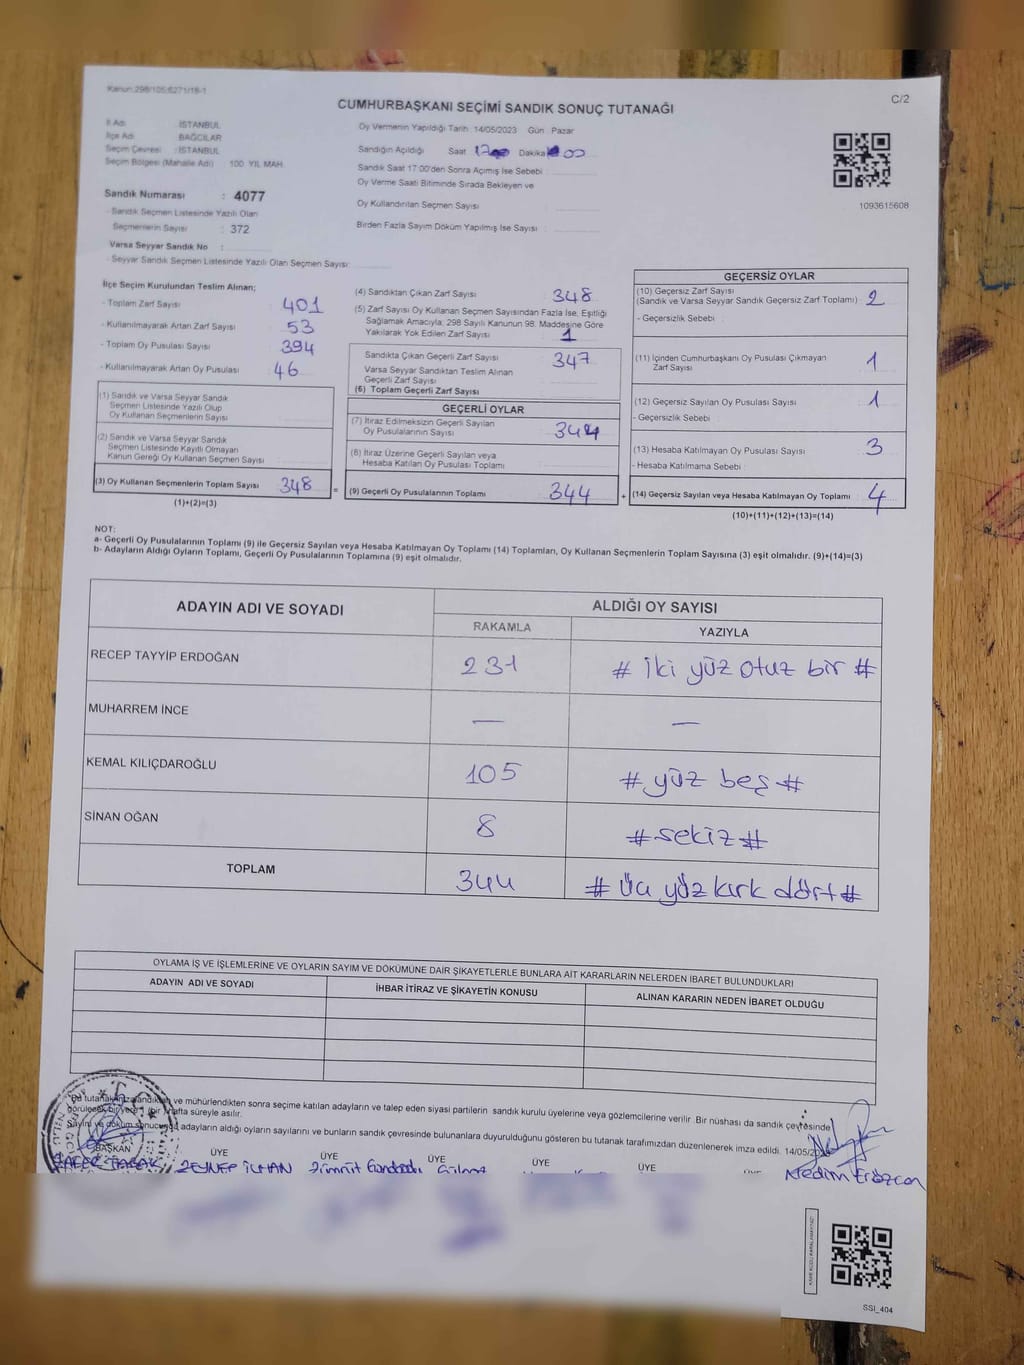 Kanun:298/105;6271/18-1
C/2
CUMHURBAŞKANI SEÇİMİ SANDIK SONUÇ TUTANAĞI
İl Adı : İSTANBUL
İlçe Adı : BAĞCILAR
Seçim Çevresi : İSTANBUL
Seçim Bölgesi (Mahalle Adı) 100 YIL MAH.
Sandık Numarası : 4077
- Sandık Seçmen Listesinde Yazılı Olan
Seçmenlerin Sayısı : 372
Varsa Seyyar Sandık No :
- Seyyar Sandık Seçmen Listesinde Yazılı Olan Seçmen Sayısı:
Oy Vermenin Yapıldığı Tarih :14/05/2023 Gün : Pazar
Sandığın Açıldığı Saat Dakika 00
Sandık Saat 17:00'den Sonra Açımış İse Sebebi :
Oy Verme Saati Bitiminde Sırada Bekleyen ve
Oy Kullandırılan Seçmen Sayısı :
Birden Fazla Sayım Döküm Yapılmış İse Sayısı :
1093615608
İlçe Seçim Kurulundan Teslim Alınan;
- Toplam Zarf Sayısı : 401
- Kullanılmayarak Artan Zarf Sayısı : 53
- Toplam Oy Pusulası Sayısı : 394
- Kullanılmayarak Artan Oy Pusulası : 46
(1) Sandık ve Varsa Seyyar Sandık
Seçmen Listesinde Yazılı Olup
Oy Kullanan Seçmenlerin Sayısı :
(2) Sandık ve Varsa Seyyar Sandık
Seçmen Listesinde Kayıtlı Olmayan
Kanun Gereği Oy Kullanan Seçmen Sayısı :
(3) Oy Kullanan Seçmenlerin Toplam Sayısı : 348
(1)+(2)=(3)
(4) Sandıktan Çıkan Zarf Sayısı : 348
(5) Zarf Sayısı Oy Kullanan Seçmen Sayısından Fazla İse, Eşitliği
Sağlamak Amacıyla; 298 Sayılı Kanunun 98. Maddesine Göre
Yakılarak Yok Edilen Zarf Sayısı : 1
Sandıkta Çıkan Geçerli Zarf Sayısı : 347
Varsa Seyyar Sandıktan Teslim Alınan
Geçerli Zarf Sayısı
(6) Toplam Geçerli Zarf Sayısı
GEÇERLİ OYLAR
(7) İtiraz Edilmeksizin Geçerli Sayılan
Oy Pusulalarının Sayısı : 344
(8) İtiraz Üzerine Geçerli Sayılan veya
Hesaba Katılan Oy Pusulası Toplamı :
= (9) Geçerli Oy Pusulalarının Toplamı : 344 +
GEÇERSİZ OYLAR
(10) Geçersiz Zarf Sayısı
(Sandık ve Varsa Seyyar Sandık Geçersiz Zarf Toplamı) : 2
- Geçersizlik Sebebi :
(11) İçinden Cumhurbaşkanı Oy Pusulası Çıkmayan
Zarf Sayısı : 1
(12) Geçersiz Sayılan Oy Pusulası Sayısı : 1
- Geçersizlik Sebebi :
(13) Hesaba Katılmayan Oy Pusulası Sayısı : 3
- Hesaba Katılmama Sebebi :
(14) Geçersiz Sayılan veya Hesaba Katılmayan Oy Toplamı : 4
(10)+(11)+(12)+(13)=(14)
NOT:
a- Geçerli Oy Pusulalarının Toplamı (9) ile Geçersiz Sayılan veya Hesaba Katılmayan Oy Toplamı (14) Toplamları, Oy Kullanan Seçmenlerin Toplam Sayısına (3) eşit olmalıdır. (9)+(14)=(3)
b- Adayların Aldığı Oyların Toplamı, Geçerli Oy Pusulalarının Toplamına (9) eşit olmalıdır.
ADAYIN ADI VE SOYADI ALDIĞI OY SAYISI
RAKAMLA YAZIYLA
RECEP TAYYİP ERDOĞAN 231 # iki yüz otuz bir #
MUHARREM İNCE — —
KEMAL KILIÇDAROĞLU 105 # yüz beş #
SİNAN OĞAN 8 # sekiz #
TOPLAM 344 # Üç yüz kırk dört #
OYLAMA İŞ VE İŞLEMLERİNE VE OYLARIN SAYIM VE DÖKÜMÜNE DAİR ŞİKAYETLERLE BUNLARA AİT KARARLARIN NELERDEN İBARET BULUNDUKLARI
ADAYIN ADI VE SOYADI İHBAR İTİRAZ VE ŞİKAYETİN KONUSU ALINAN KARARIN NEDEN İBARET OLDUĞU
Bu tutanak imzalandıktan ve mühürlendikten sonra seçime katılan adayların ve talep eden siyasi partilerin sandık kurulu üyelerine veya gözlemcilerine verilir. Bir nüshası da sandık çevresinde
görülecek bir yere 1 (bir) hafta süreyle asılır.
Sayım ve döküm sonucunda adayların aldığı oyların sayılarını ve bunların sandık çevresinde bulunanlara duyurulduğunu gösteren bu tutanak tarafımızdan düzenlenerek imza edildi. 14/05/2023
BAŞKAN ÜYE ÜYE ÜYE ÜYE ÜYE
ZEYNEP İLHAN
Nedim
SSI_404